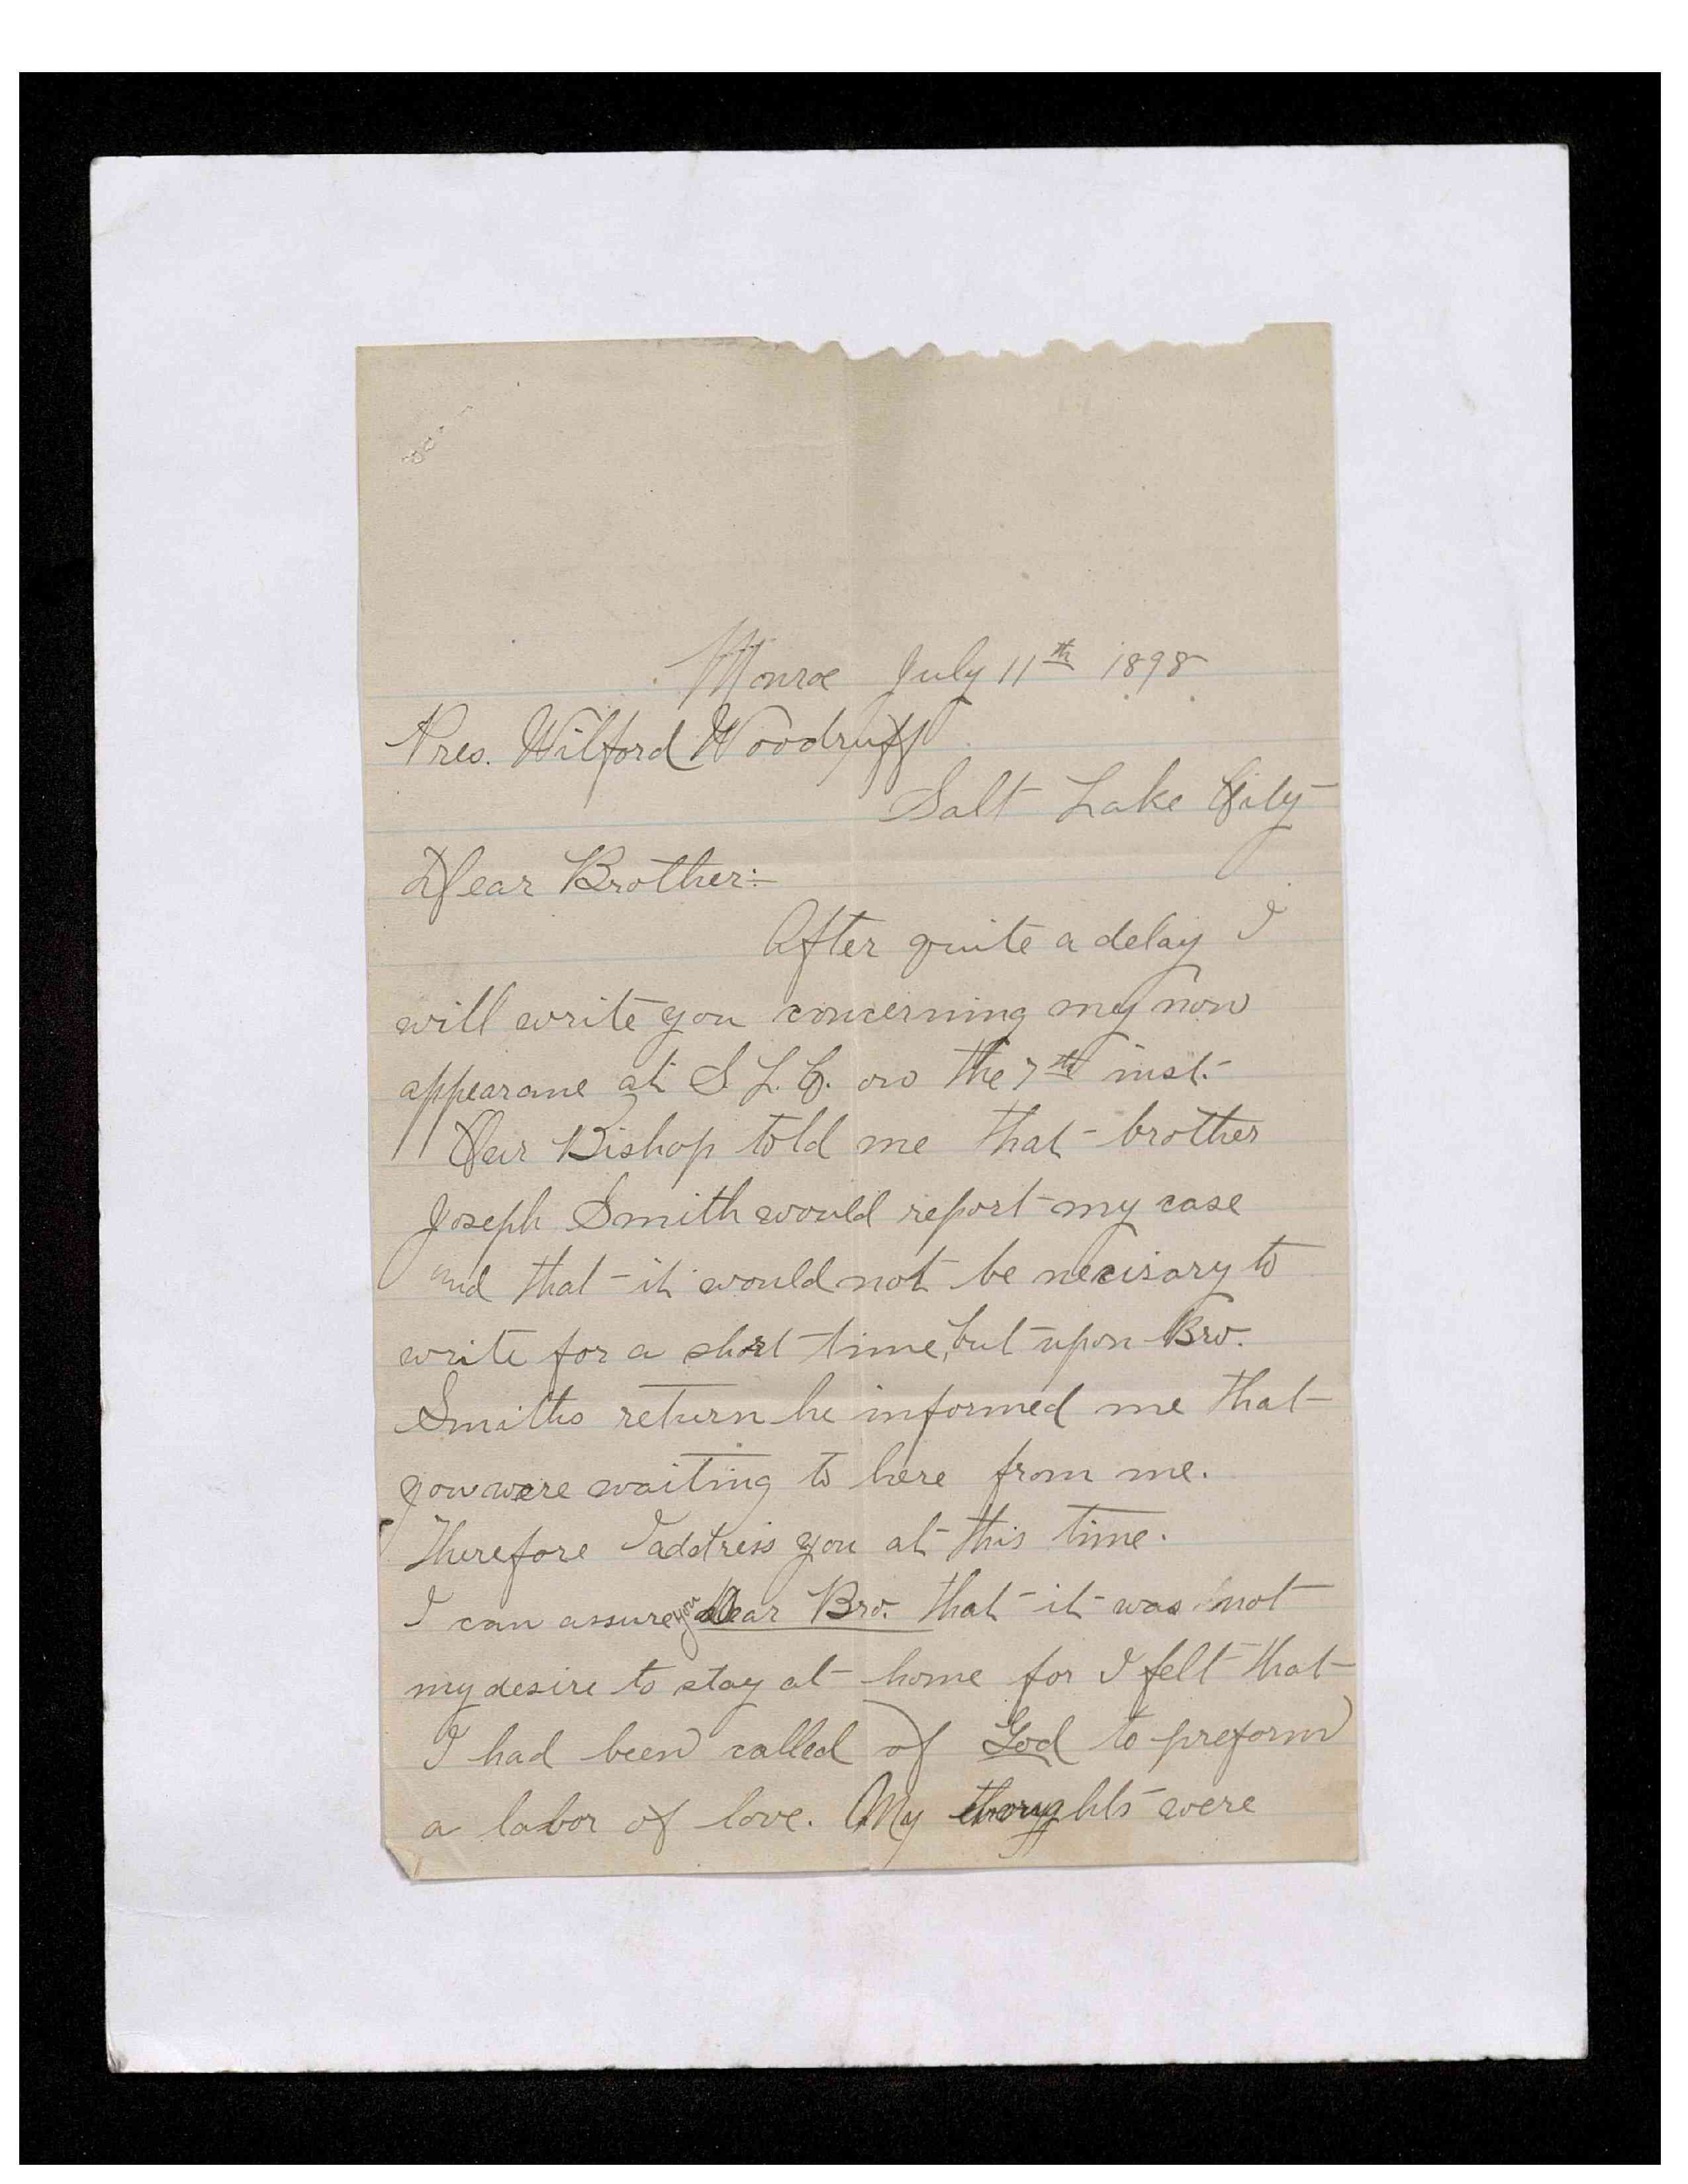 Monroe July 11th 1898
Pres. Wilford Woodruff
Salt Lake City
Dear Brother:
After quite a delay I
will write you concerning my non
appearane at S. L. C. on the 7th inst.
Our Bishop told me that brother
Joseph Smith would report my case
and that it would not be necisary to
write for a short time, but upon Bro.
Smiths return he informed me that
you were waiting to here from me.
Therefore I address you at this time.
I can assure you Dear Bro. that it was not
my desire to stay at home for I felt that
I had been called of God to preform
a labor of love. My thoughts were